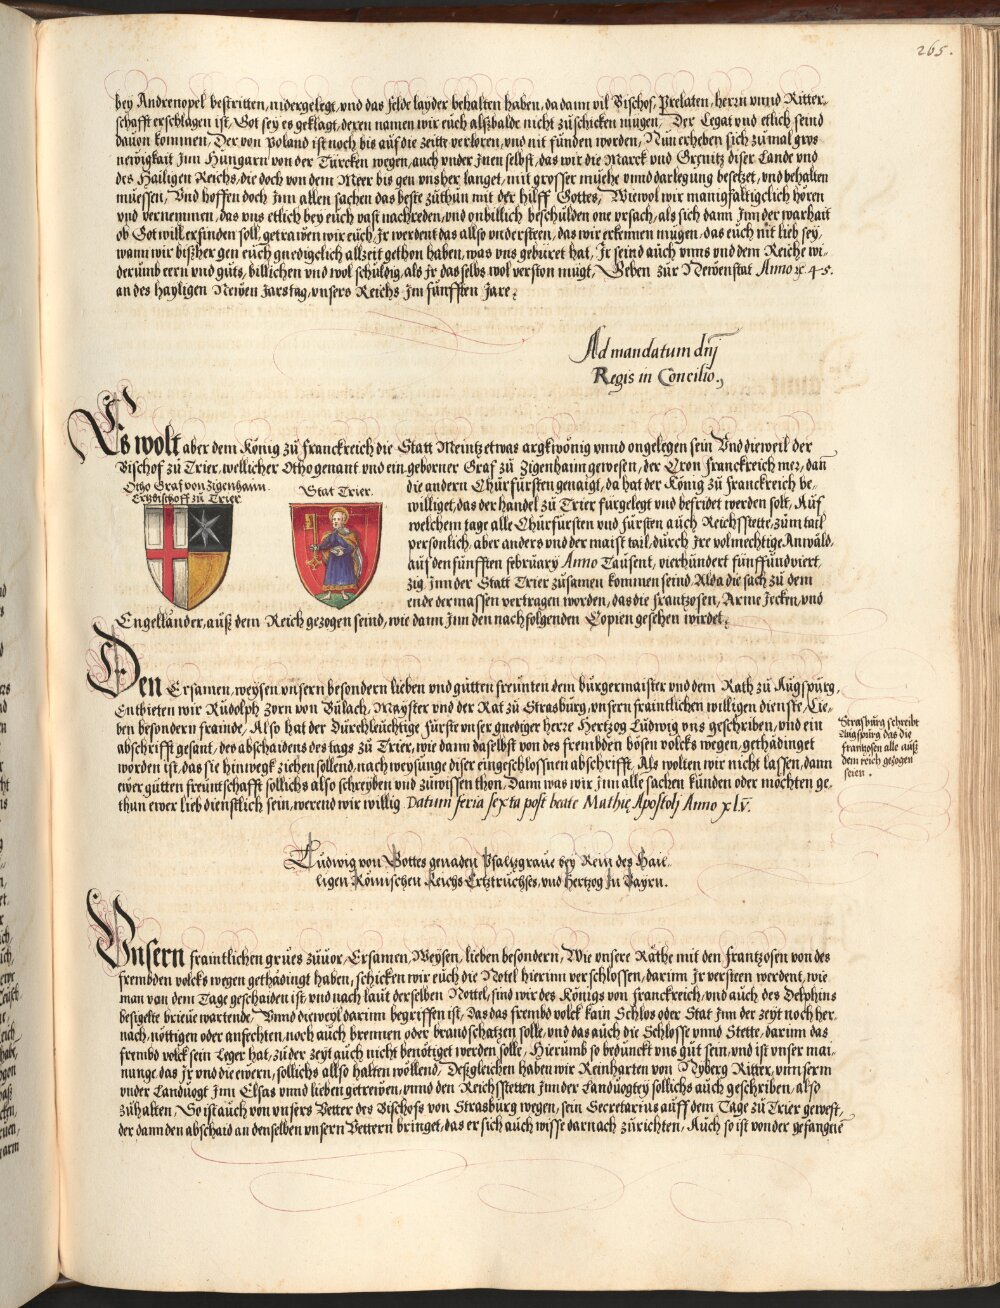 265.
bey Andrenopel bestritten, nidergelegt, vnd das felde layder behalten haben, da dann vil Bischof, Prelaten, herrn vnnd Ritter-
schafft erschlagen ist, Got sey es geklagt, deren namen wir euch alßbalde nicht zůschicken mugen, Der Legat vnd etlich seind
dauon kommen, Der von Poland ist noch bis auf die zeitte verloren, vnd nit funden worden, Nun erheben sich zůmal gros
newigkait Inn Hungarn von der Türcken wegen, auch vnder Inen selbst, das wir die Marck vnd Grenitz diser Lande vnd
des Hailigen Reichs, die doch von dem Meer bis gen vnsher langet, mit grosser müehe vnnd darlegung besetzet, vnd behalten
müessen, Vnd hoffen doch Inn allen sachen das beste zůthůn mit der hilff Gottes, Wiewol wir manigfaltigclich hören
vnd vernemmen, das vns etlich bey euch vast nachreden, vnd onbillich beschulden one vrsach, als sich dann Inn der warhait
ob Got will erfinden soll, getrawen wir euch, Ir werdent das allso vndersteen, das wir erkennen mügen, das euch nit lieb sey,
wann wir bißher gen euch gnedigclich allzeit gethon haben, was vns gebüret hat, Ir seind auch vnns vnd dem Reiche wi-
derumb eern vnd gůts, billichen vnd wol schuldig, als Ir das selbs wol verston mügt, Geben zůr Newenstat Anno &c. 45.
an des hayligen Newen Jarstag, vnsers Reichs Im fünfften Jare.
Ad mandatum dnj
Regis in Concilio.
Es wolt aber dem König zů Franckreich die Statt Meintz etwas argkwönig vnnd ongelegen sein Vnd dieweil der
Bischof zů Trier, wellicher Otho genant vnd ein geborner Graf zů Zigenhaim gewesen, der Cron Franckreich mer, dañ
Otho Graf von Zigenhaim.
Ertzbischoff zů Trier
Stat Trier.
die andern Churfürsten genaigt, da hat der König zů Franckreich be-
williget, das der handel zů Trier fürgelegt vnd befridet werden solt, Auf
welchem tage alle Churfürsten vnd fürsten auch Reichsstette, zům tail
personlich, aber anders vnd der maist tail, durch Ire volmechtige Anwäld,
auf den fünfften february Anno Tausent, vierhundert fünffundviert,
zig, Inn der Statt Trier zůsamen kommen seind, Alda die sach zů dem
ende dermassen vertragen worden, das die frantzosen, Arme Jecken, vnd
Engelländer, auß dem Reich gezogen seind, wie dann Inn den nachfolgenden Copien gesehen wirdet.
Den Ersamen, weysen vnsern besondern lieben vnd gůtten freunten dem burgermaister vnd dem Rath zů Augspurg,
Entbieten wir Růdolph Zorn von Bülach, Mayster vnd der Rat zů Strasburg, vnsern fraintlichen willigen dienste, Lie-
ben besondern frainde, Also hat der Durchleuchtige fürst vnser gnediger herre Hertzog Ludwig vns geschriben, vnd ein
abschrifft gesant, des abschaidens des tags zů Trier, wie dann daselbst von des frembden bösen volcks wegen, gethädinget
worden ist, das sie hinwegk ziehen sollend, nach weysunge diser eingeschlossnen abschrifft, Als wolten wir nicht lassen, dann
ewer gůtten freuntschafft sollichs also schreyben vnd zůwissen thon, Dann was wir Inn alle sachen kunden oder möchten ge-
thun ewer lieb dienstlich sein, werend wir willig. Datum feria sexta post beate Mathię Apostolj Anno xlv.
Strasburg schreibt
Augspurg das die
frantzosen alle auß
dem reich gezogen
seien.
Ludwig von Gottes genaden Pfaltzgraue bey Rein des Hail-
ligen Römischen Reichs Ertztruchses, vnd Hertzog In Bayrn.
Vnsern fraintlichen grües zůuor, Ersamen, Weysen, lieben besondern, Wie vnsere Räthe mit den frantzosen von des
frembden volcks wegen gethädingt haben, schicken wir euch die Notel hierinn verschlossen, darinn Ir versteen werdent, wie
man von dem Tage geschaiden ist, vnd nach laut derselben Nottel, sind wir des Königs von franckreich, vnd auch des Delphins
besigelte brieue wartende, Vnnd dieweyl darinn begriffen ist, das das frembd volck kain Schlos oder Stat Inn der zeyt noch her-
nach, nöttigen oder anfechten, noch auch brennen oder brandschatzen solle, vnd das auch die Schlosse vnnd Stette, darinn das
frembd volck sein Leger hat, zů der zeyt auch nicht benötiget werden solle, Hierumb so bedunckt vns gůt sein, vnd ist vnser mai-
nunge, das Ir vnd die ewern, sollichs allso halten wöllend, Deßgleichen haben wir Reinharten von Nyberg Ritter, vnnserm
vnder Landuogt Inn Elsas vnnd lieben getrewen, vnnd den Reichsstetten Inn der Landuogtey sollichs auch geschriben, also
zůhalten, So ist auch von vnsers Vetter des Bischofs von Strasburg wegen, sein Secretarius auff dem Tage zů Trier gewest,
der dann den abschaid an denselben vnsern Vettern bringet, das er sich auch wisse darnach zůrichten, Auch so ist von der gefangnē